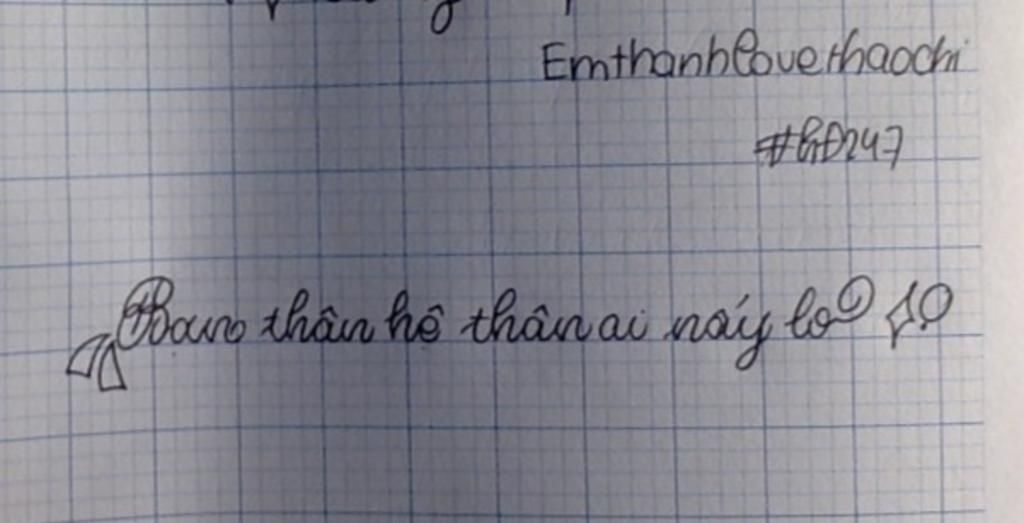 Emthanhlovethaochi
#GĐ247
thân hồ thân ai náy lo